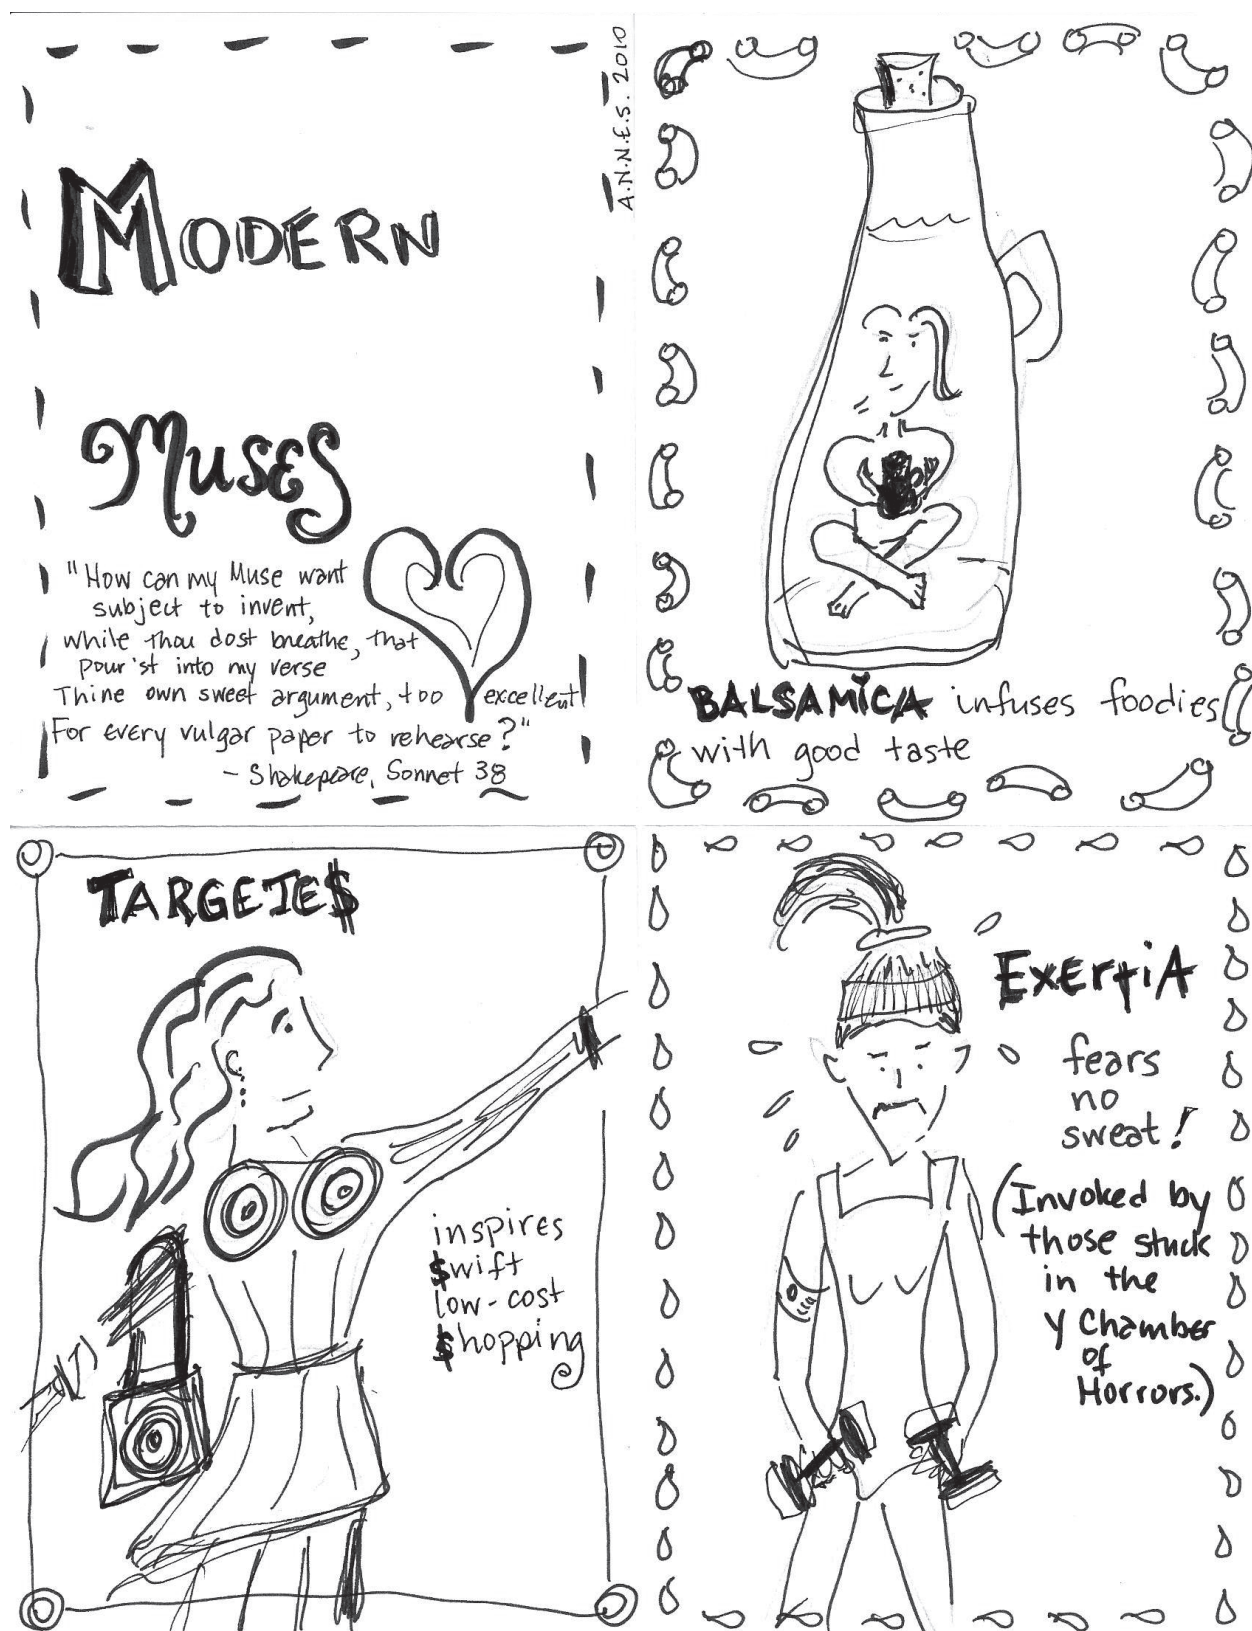 MODERN
MUSES
"How can my Muse want
subject to invent,
while thou dost breathe, that
pour'st into my verse
Thine own sweet argument, too excellent
For every vulgar paper to rehearse?"
- Shakepeare, Sonnet 38
A.N.N.E.S. 2010
BALSAMiCA infuses foodies
with good taste
TARGETE$
inspires
$wift
low-cost
$hopping
ExertiA
fears
no
sweat!
(Invoked by
those stuck
in the
Y Chamber
of
Horrors.)